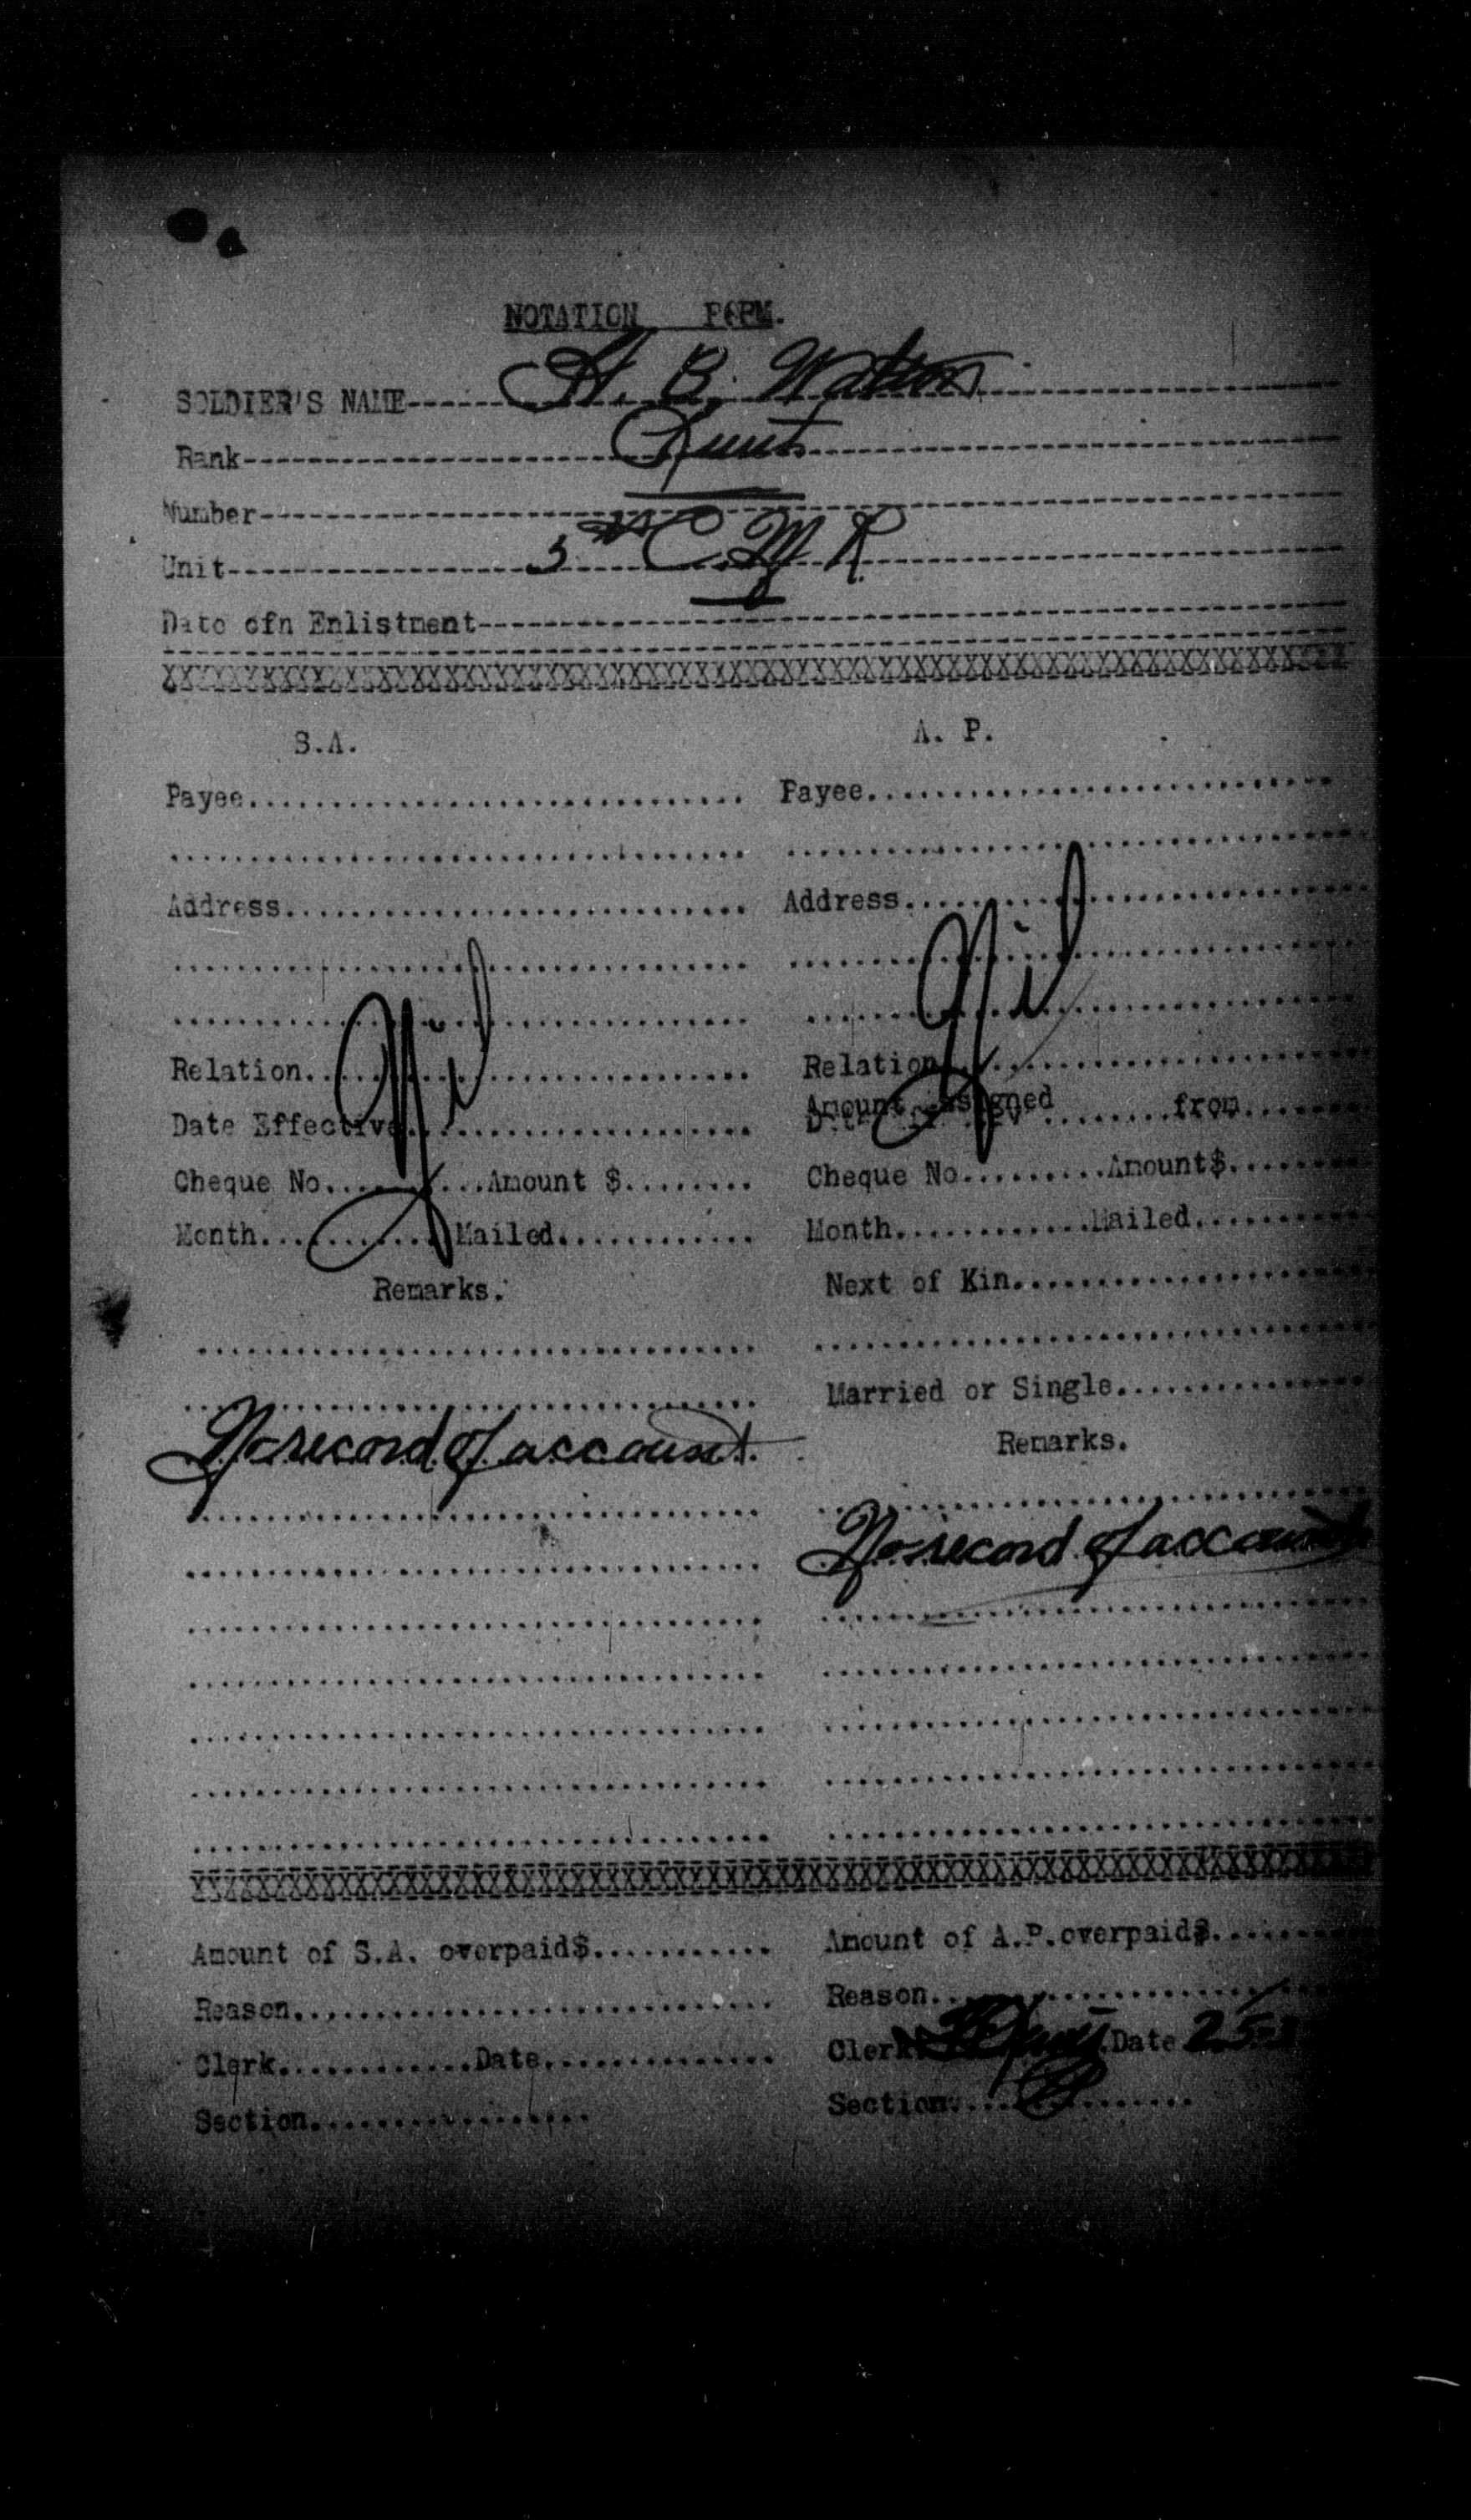 NOTATION FORM.
SOLDIER'S NAME A. B. Watson
Rank Lieut
Number
Unit 5th C. M. R.
Date ofn Enlistment
S.A.
Payee
Address
Nil
Relation
Date Effective
Cheque No. Amount $
Month Mailed
Remarks.
No record of account.
A. P.
Payee
Address
Nil
Relation
Amount Assigned from
Cheque No. Amount$
Month Mailed
Next of Kin
Married or Single
Remarks.
No record of account
Amount of S.A. overpaid$
Reason
Clerk Date
Section
Amount of A.P. overpaid$
Reason
Clerk Date 25
Section